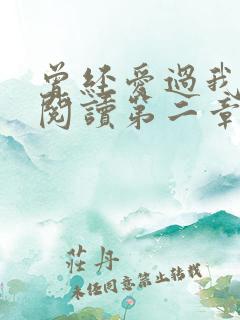 曾經愛過我
閱讀第二章
莊丹
未經同意禁止轉載